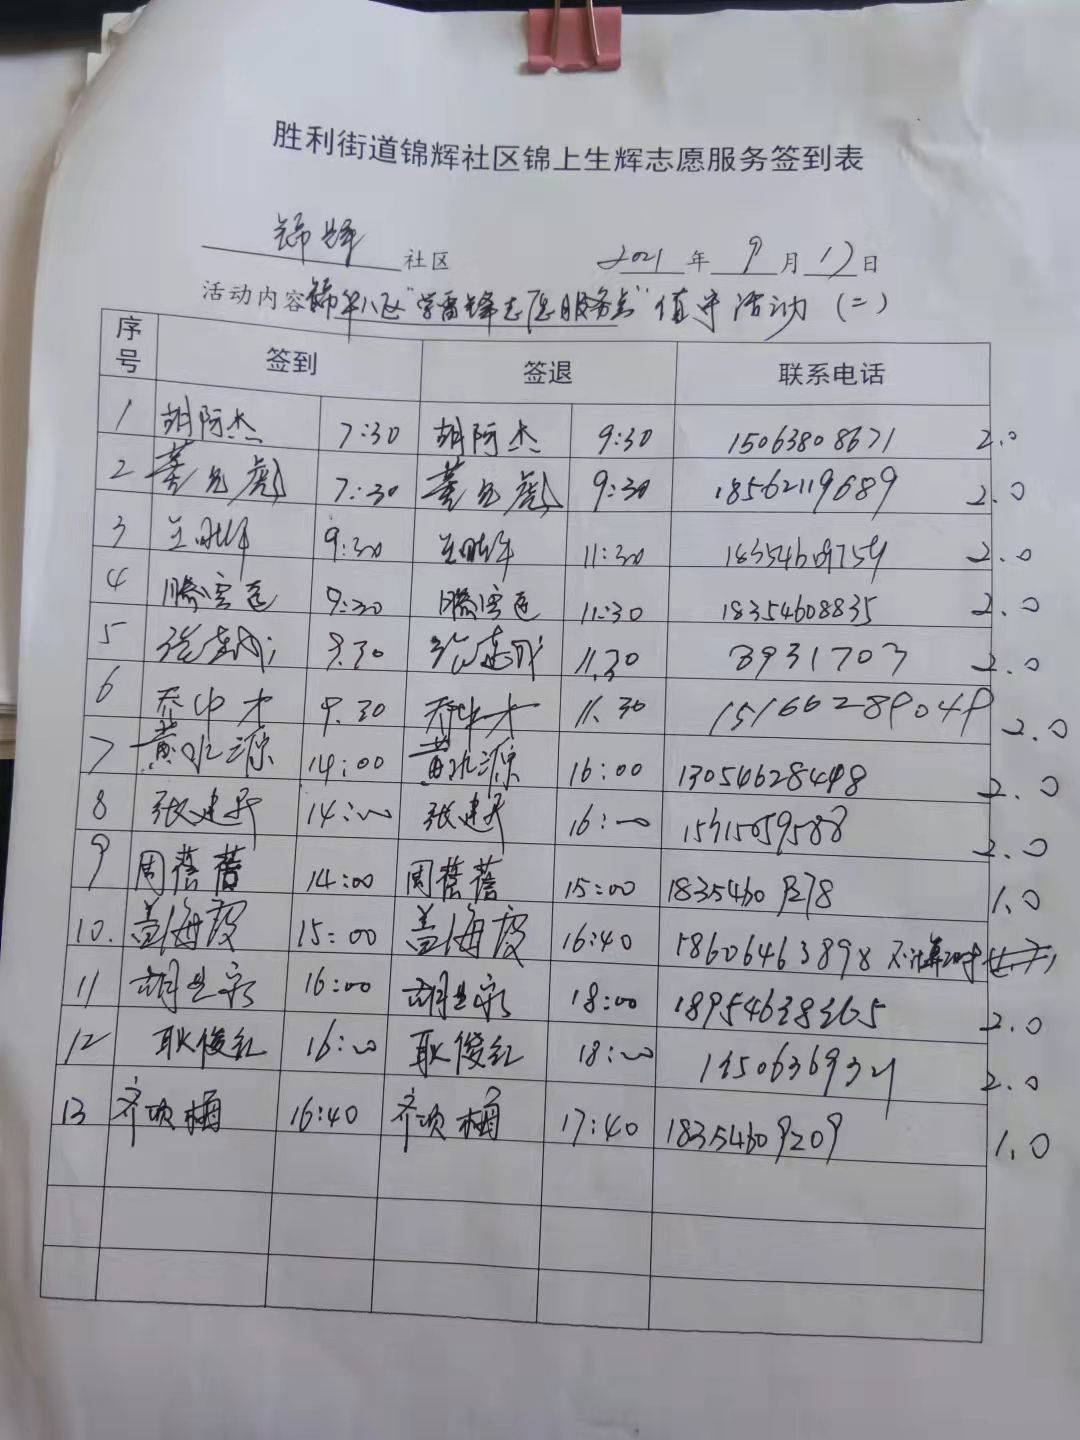 胜利街道锦辉社区锦上生辉志愿服务签到表
锦辉 社区 2021 年 9 月 17 日
活动内容 锦华八区"学雷锋志愿服务岗"值守活动（二）
序号 签到 签退 联系电话
1 胡阿杰 7:30 胡阿杰 9:30 15063808671 2.0
2 7:30 9:30 18562119689 2.0
3 9:30 11:30 18354609759 2.0
4 滕雪莲 9:30 滕雪莲 11:30 18354608835 2.0
5 9.30 11.30 3931703 2.0
6 乔中才 9.30 乔中才 11.30 15166289049 2.0
7 黄水源 14:00 黄水源 16:00 13054628448 2.0
8 张建平 14:00 张建平 16:00 2.0
9 周蓓蕾 14:00 周蓓蕾 15:00 18354609278 1.0
10. 盖海霞 15:00 盖海霞 16:40 18606463898 不计算工时
11 16:00 18:00 18954638365 2.0
12 耿俊红 16:00 耿俊红 18:00 2.0
13 齐项梅 16:40 齐项梅 17:40 18354609209 1.0